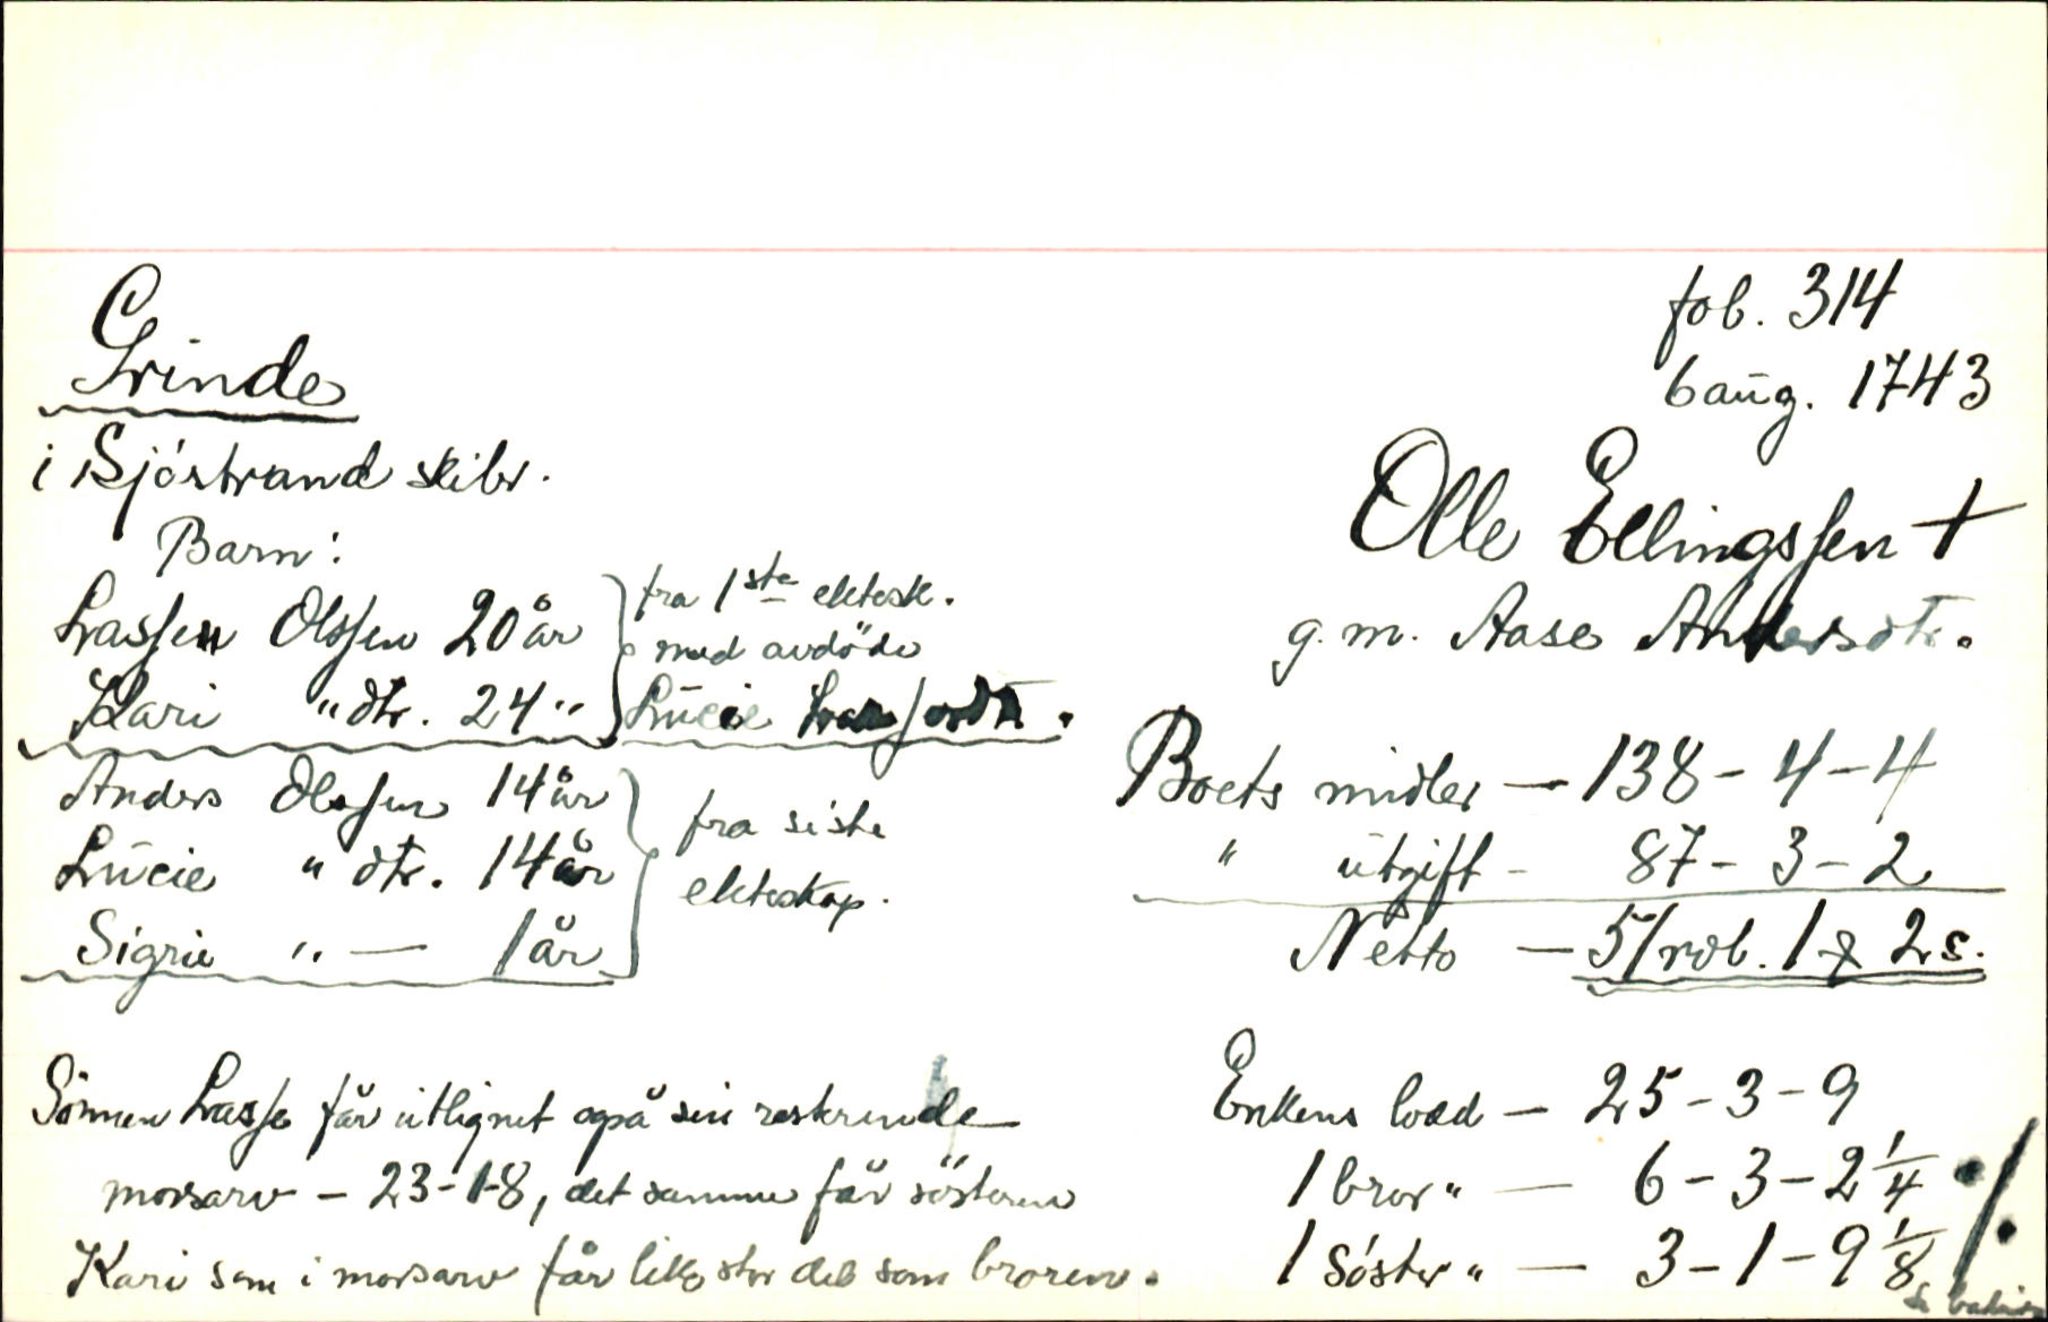 Grinde
i Sjöstrand skibr.
Barn:
Lrasssen Olssen 20 år
Kari " dtr. 24 "
fra 1ste ektesk.
med avdöde
Lucie
Anders Olssen 14 år
Lucie " dtr. 14 år
Sigrie " — 1 år
fra siste
ekteskap.
Sönnen Lrasse får utlignet også sin resterende
morsarv – 23-1-8, det samme får sösteren
Kari som i morsarv får like stor del som broren.
fol. 314
6 aug. 1743
Olle Ellingssen +
g. m. Aase Andersdtr.
Boets midler — 138 – 4 – 4
" utgift – 87 – 3 – 2
Netto — 51 rdl. 1 ₰ 2 s.
Enkens lodd — 25 – 3 – 9
1 bror " — 6 – 3 – 2 1/4
1 söster " — 3 – 1 – 9 1/8
./.